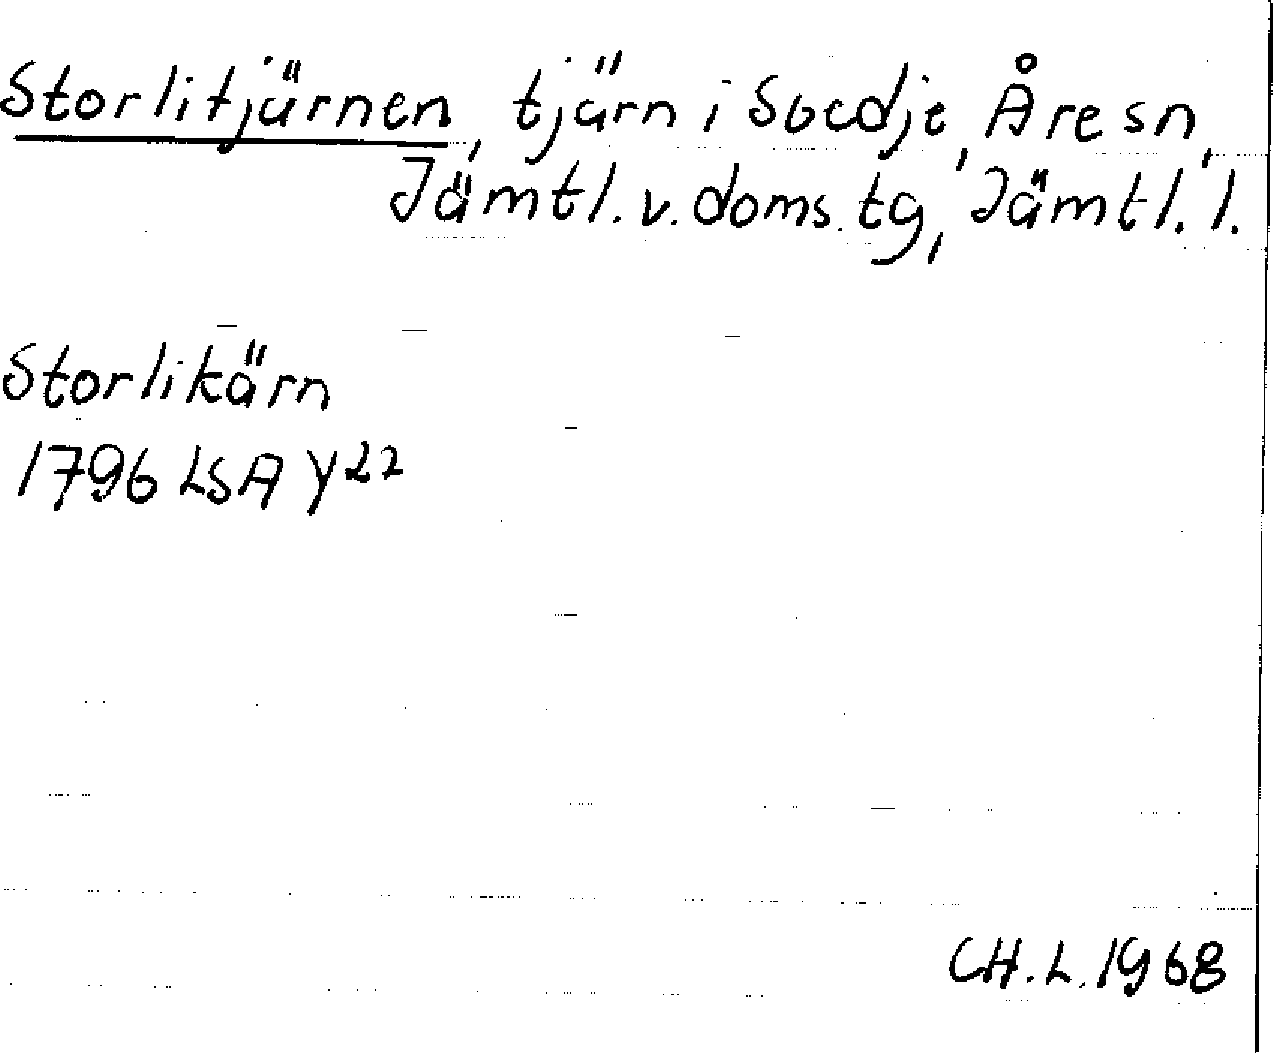 Storlitjärnen, tjärn i Svedje, Åre sn,
Jämtl. v. doms. tg, Jämtl. l.
Storlikärn
1796 LSA Y22
CH. L. 1968